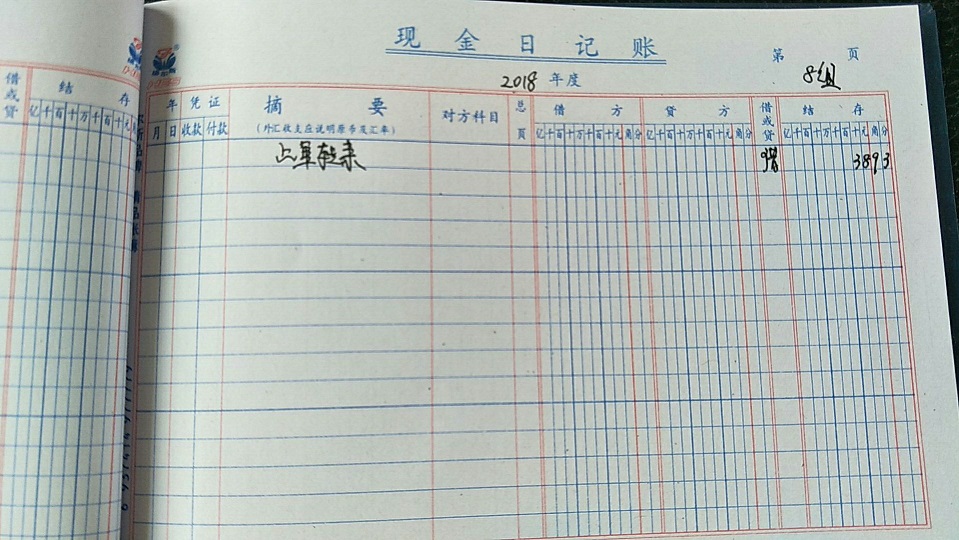 现金日记账
第 页
2018 年度 8组
借或贷 结 存
亿千百十万千百十元
年 凭证 摘 要 对方科目 总页 借 方 贷 方 借或贷 结 存
月 日 收款 付款 (外汇收支应说明原币及汇率) 亿千百十万千百十元角分 亿千百十万千百十元角分 亿千百十万千百十元角分
上年转来 借 3893